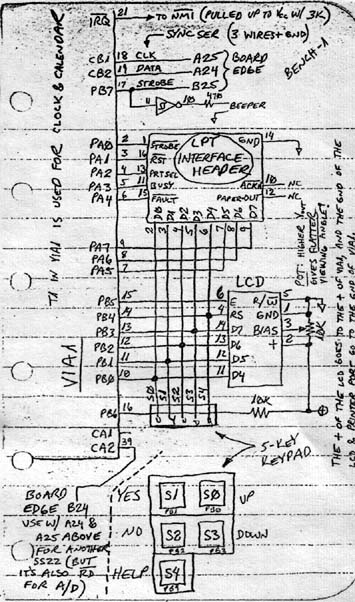 IRQ 21 → TO NMI (PULLED UP TO Vcc W/ 3K)
SYNC SER (3 WIRES + GND)
CB1 18 CLK A25 BOARD
CB2 19 DATA A24 EDGE
PB7 17 STROBE B25
BENCH-1
11 10 470
BEEPER
T1 IN VIA1 IS USED FOR CLOCK & CALENDAR
PA0 2 1 STROBE LPT GND 14
PA1 3 16 RST INTERFACE-
PA2 4 13 PRTSEL HEADER
PA3 5 11 BUSY ACK 10 NC
PA4 6 15 FAULT PAPER-OUT 12 NC
D0 D1 D2 D3 D4 D5 D6 D7
2 3 4 5 6 7 8 9
PA7 9
PA6 8
PA5 7
POT: HIGHER V
GIVES FLATTER
VIEWING ANGLE!
LCD
PB5 15 6 E R/W 5
PB4 14 4 RS GND 1
PB3 13 14 D7 BIAS 3
PB2 12 13 D6 + 2
PB1 11 12 D5
PB0 10 11 D4
10K
VIA-1
S0 S1 S2 S3 S4
PB6 16
10K
CA1
CA2 39
5-KEY
KEYPAD
THE + OF THE LCD GOES TO THE + OF VIA1, AND THE GND OF THE
LCD & PRINTER PORT GO TO THE GND OF VIA1.
BOARD
EDGE B24
USE W/ A24 &
A25 ABOVE
FOR ANOTHER
SS22 (BUT
IT'S ALSO RD
FOR A/D)
YES S1 S0 UP
PB1 PB0
NO S2 S3 DOWN
PB2 PB3
HELP S4
PB4